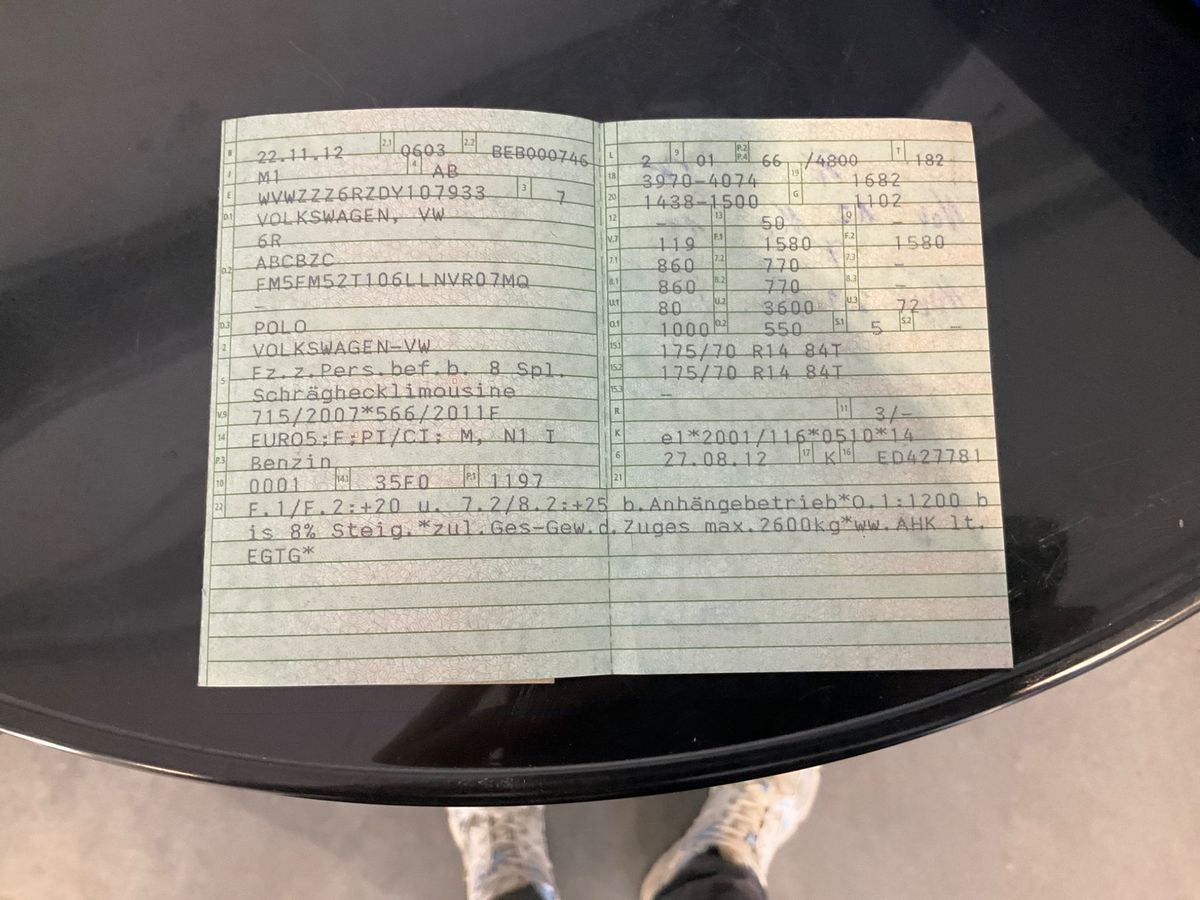 B 22.11.12 2.1 0603 2.2 BEB000746
J M1 4 AB
E WVWZZZ6RZDY107933 3 7
D.1 VOLKSWAGEN, VW
6R
D.2 ABCBZC
FM5FM52T106LLNVR07MQ
–
D.3 POLO
2 VOLKSWAGEN-VW
5 Fz.z.Pers.bef.b. 8 Spl.
Schräghecklimousine
V.9 715/2007*566/2011F
14 EURO5;F;PI/CI; M, N1 I
P.3 Benzin
10 0001 14.1 35F0 P.1 1197
L 2 9 01 P.2 P.4 66 /4800 T 182
18 3970-4074 19 1682
20 1438-1500 G 1102
12 – 13 50 Q –
V.7 119 F.1 1580 F.2 1580
7.1 860 7.2 770 7.3 –
8.1 860 8.2 770 8.3 –
U.1 80 U.2 3600 U.3 72
O.1 1000 O.2 550 S.1 5 S.2 –
15.1 175/70 R14 84T
15.2 175/70 R14 84T
15.3 –
R 11 3/-
K e1*2001/116*0510*14
6 27.08.12 17 K 16 ED427781
21
22 F.1/F.2:+20 u. 7.2/8.2:+25 b.Anhängebetrieb*O.1:1200 b
is 8% Steig.*zul.Ges-Gew.d.Zuges max.2600kg*ww.AHK lt.
EGTG*